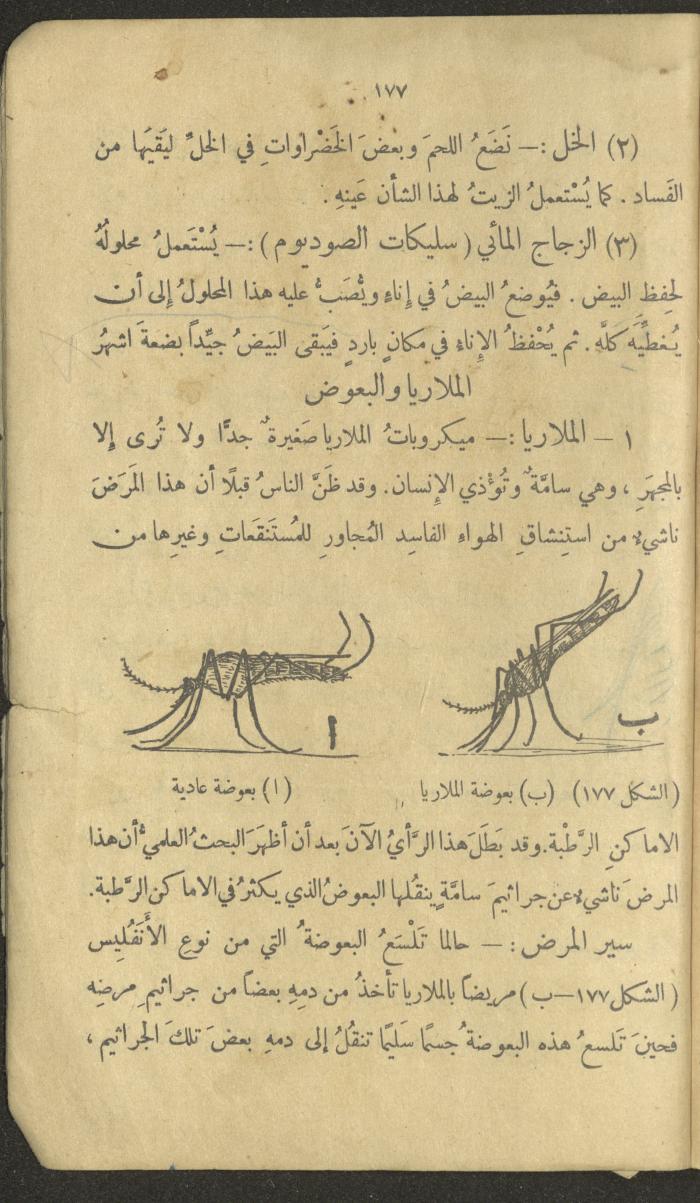 ١٧٧
(٢) الخل :— نَضَعُ اللحمَ وبعضَ الخَضْراواتِ في الخلِّ ليَقيَها من
الفَساد . كما يُسْتعملُ الزيتُ لهذا الشأن عَينهِ .
(٣) الزجاج المائي ( سليكات الصوديوم ) :— يُسْتَعملُ محلولُهُ
لحِفظِ البيض . فيُوضعُ البيضُ في إناءٍ ويُصَبُّ عليه هذا المحلولُ إلى أن
يُغطِّيَه كلَّه . ثم يُحْفظُ الإناء في مكانٍ باردٍ فيَبقى البَيضُ جيِّداً بضعةَ اشهُر
الملاريا والبعوض
١ — الملاريا :— ميكروباتُ الملاريا صَغيرةٌ جدًّا ولا تُرى إلا
بالمجهَرِ ، وهي سامَّةٌ وتُؤْذي الإنسان . وقد ظَنَّ الناسُ قبلًا أن هذا المَرَضَ
ناشيءٌ من استِنشاقِ الهواءِ الفاسِد المُجاورِ للمُستَنقَعاتِ وغيرِها من
ب
ا
(الشكل ١٧٧) (ب) بعوضة الملاريا
(ا) بعوضة عادية
الاماكنِ الرَّطْبة . وقد بَطَلَ هذا الرَّأيُ الآنَ بعد أن أظهَرَ البحثُ العلميُّ أن هذا
المرضَ ناشيءٌ عن جراثيمَ سامَّةٍ ينقُلها البعوضُ الذي يكثُرُ في الاماكن الرَّطبة.
سير المرض :— حالما تَلْسَعُ البعوضةُ التي من نوعِ الأَنَفُليس
( الشكل ١٧٧—ب ) مريضاً بالملاريا تأخذُ من دمِهِ بعضاً من جراثيمِ مرضِه
فحينَ تَلسعُ هذه البعوضةُ جسمًا سَليمًا تنقُلُ إلى دمهِ بعضَ تلكَ الجراثيم ،